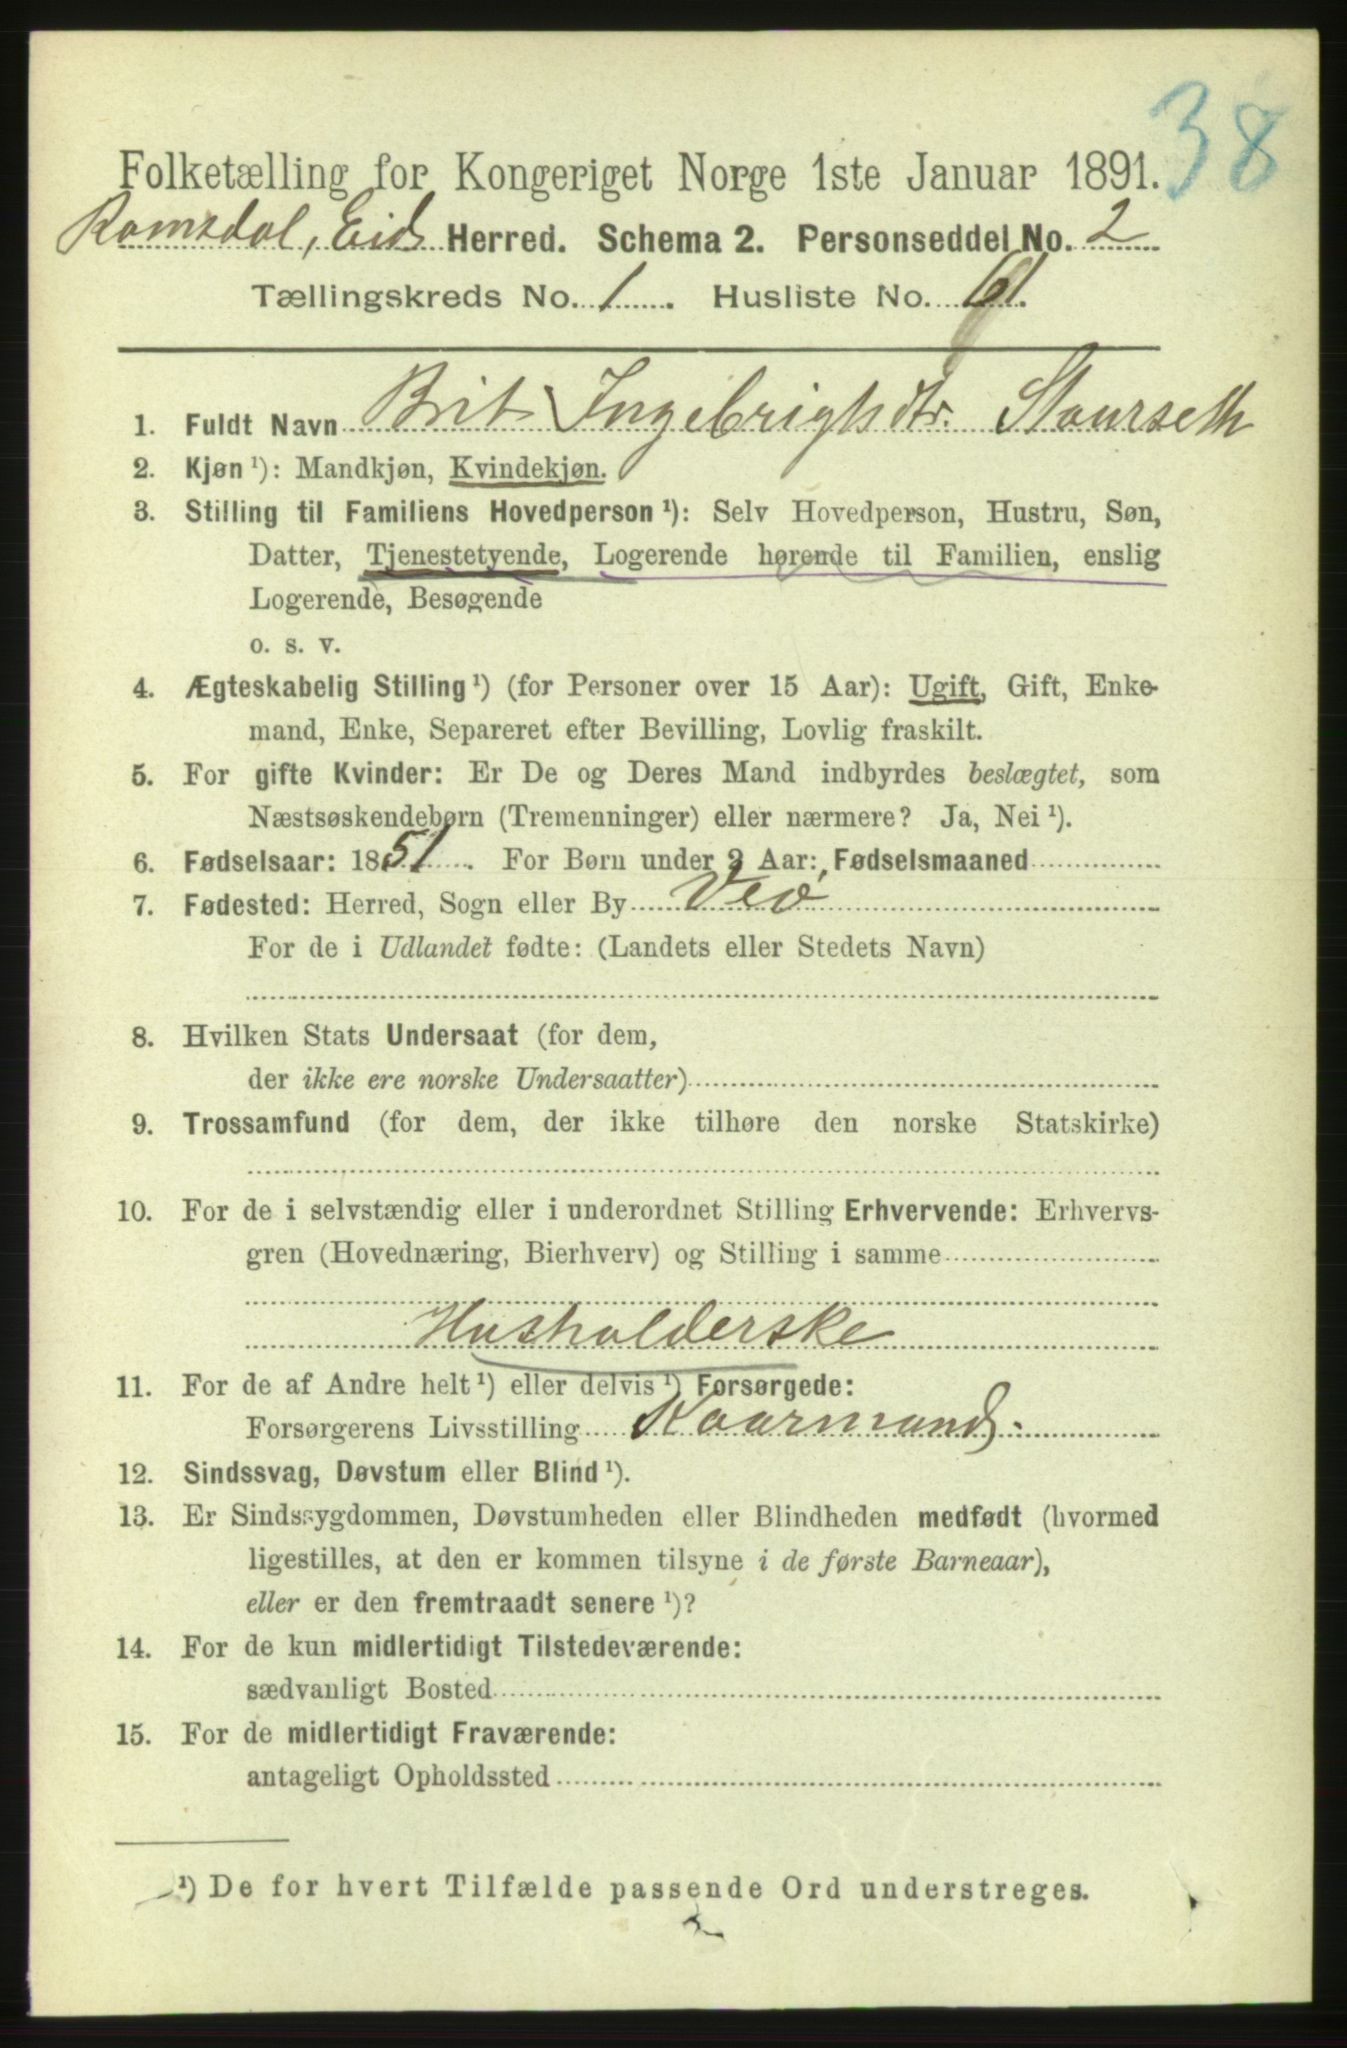 38
Folketælling for Kongeriget Norge 1ste Januar 1891.
Romsdal, Eid Herred. Schema 2. Personseddel No. 2
Tællingskreds No. 1. Husliste No. 61.
1. Fuldt Navn Brit Ingebrigtsdtr. Staurseth
2. Kjøn ¹): Mandkjøn, Kvindekjøn.
3. Stilling til Familiens Hovedperson ¹): Selv Hovedperson, Hustru, Søn,
Datter, Tjenestetyende, Logerende hørende til Familien, enslig
Logerende, Besøgende
o. s. v.
4. Ægteskabelig Stilling ¹) (for Personer over 15 Aar): Ugift, Gift, Enke-
mand, Enke, Separeret efter Bevilling, Lovlig fraskilt.
5. For gifte Kvinder: Er De og Deres Mand indbyrdes beslægtet, som
Næstsøskendebørn (Tremenninger) eller nærmere? Ja, Nei ¹).
6. Fødselsaar: 1851. For Børn under 2 Aar: Fødselsmaaned
7. Fødested: Herred, Sogn eller By Veø
For de i Udlandet fødte: (Landets eller Stedets Navn)
8. Hvilken Stats Undersaat (for dem,
der ikke ere norske Undersaatter)
9. Trossamfund (for dem, der ikke tilhøre den norske Statskirke)
10. For de i selvstændig eller i underordnet Stilling Erhvervende: Erhvervs-
gren (Hovednæring, Bierhverv) og Stilling i samme
Husholderske
11. For de af Andre helt ¹) eller delvis ¹) Forsørgede:
Forsørgerens Livsstilling Kaarmand.
12. Sindssvag, Døvstum eller Blind ¹).
13. Er Sindssygdommen, Døvstumheden eller Blindheden medfødt (hvormed
ligestilles, at den er kommen tilsyne i de første Barneaar),
eller er den fremtraadt senere ¹)?
14. For de kun midlertidigt Tilstedeværende:
sædvanligt Bosted
15. For de midlertidigt Fraværende:
antageligt Opholdssted
¹) De for hvert Tilfælde passende Ord understreges.